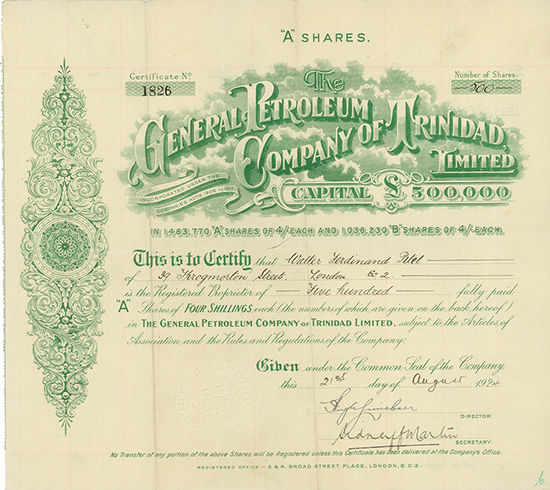 "A" SHARES.
Certificate No
1826
Number of Shares.
500
The
GENERAL PETROLEUM
COMPANY OF TRINIDAD,
LIMITED
INCORPORATED UNDER THE
COMPANIES ACTS 1908 TO 1917.
CAPITAL £500,000
IN 1,463,770 "A" SHARES OF 4/- EACH AND 1,036,230 "B" SHARES OF 4/- EACH.
This is to Certify that Walter Ferdinand
of Throgmorton Street, London E.C.2
is the Registered Proprietor of Five hundred fully paid
"A" Shares of FOUR SHILLINGS each (the numbers of which are given on the back hereof)
in THE GENERAL PETROLEUM COMPANY OF TRINIDAD LIMITED, subject to the Articles of
Association and the Rules and Regulations of the Company.
Given under the Common Seal of the Company,
this 21st day of August 1924
DIRECTOR.
Sidney H Martin
SECRETARY.
No Transfer of any portion of the above Shares will be Registered unless this Certificate has been delivered at the Company's Office.
REGISTERED OFFICE:- 2 & 4, BROAD STREET PLACE, LONDON, E.C.2.